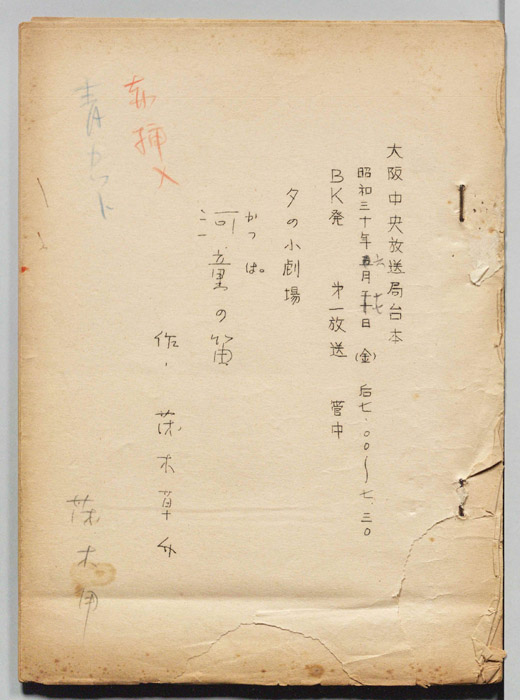 大阪中央放送局台本
昭和三十年六月十七日(金) 后七.〇〇〜七.三〇
BK発 第一放送 管中
夕の小劇場
かっぱ
河童の笛
作、茂木草介
赤挿入
青カット
茂木用